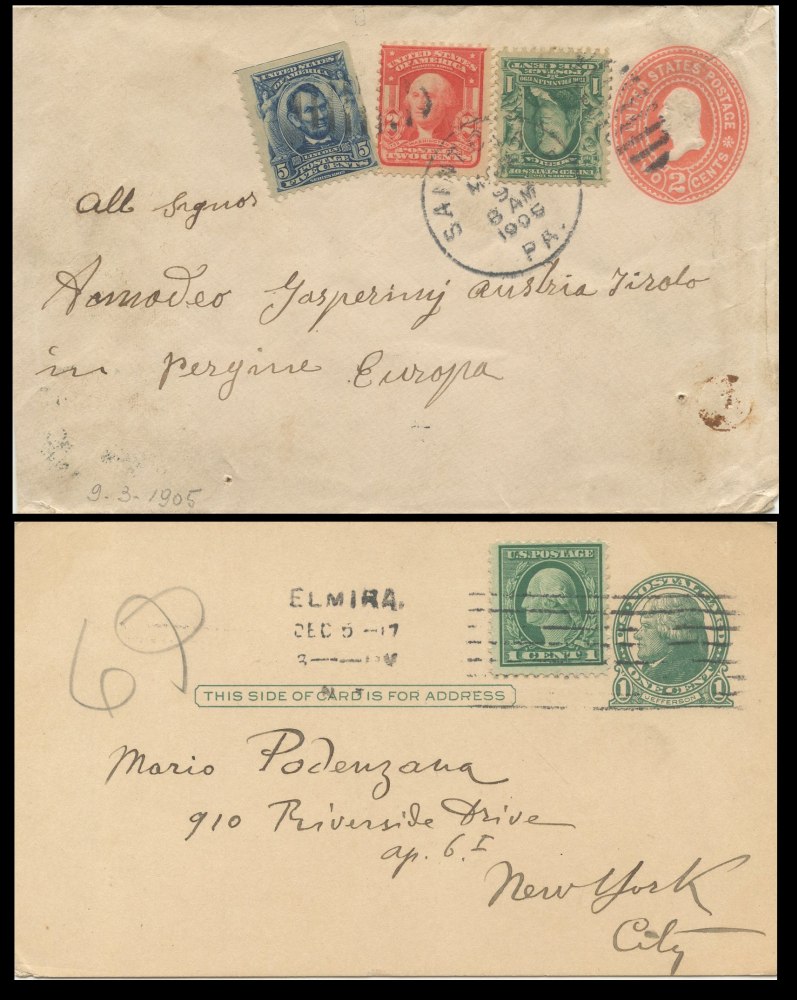 UNITED STATES
OF AMERICA
5 LINCOLN 5
POSTAGE
FIVE CENTS
UNITED STATES
OF AMERICA
POSTAGE
TWO CENTS
UNITED STATES OF
AMERICA
1 1
POSTAGE
ONE CENT
UNITED STATES POSTAGE
2 CENTS
9
8 AM
1905
PA.
All Signor
Aamodeo Gasperinij Austria Tirolo
in Pergine Europa
9-3-1905
69
ELMIRA,
DEC 5 -17
N.Y.
U.S. POSTAGE
1 CENT 1
U.S. POSTAL CARD
1 ONE CENT 1
JEFFERSON
THIS SIDE OF CARD IS FOR ADDRESS
Mario Podenzana
910 Riverside Drive
ap. 6.I
New York
City